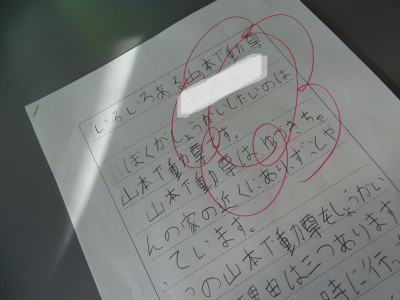 いろいろある山本下動尊
ぼくがしょうかいしたいのは
山本下動尊です。
山本下動尊はゆうきちゃ
んの家の近くにあり、ずっとや
っています。
の山本下動尊をしょうかい
理由は三つあります
時に行っ